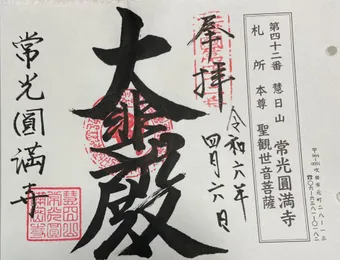 第四十二番 慧日山
札所本尊 聖観世音菩薩
常光圓滿寺
奉拝
令和六年
四月六日
大悲殿
常光圓満寺